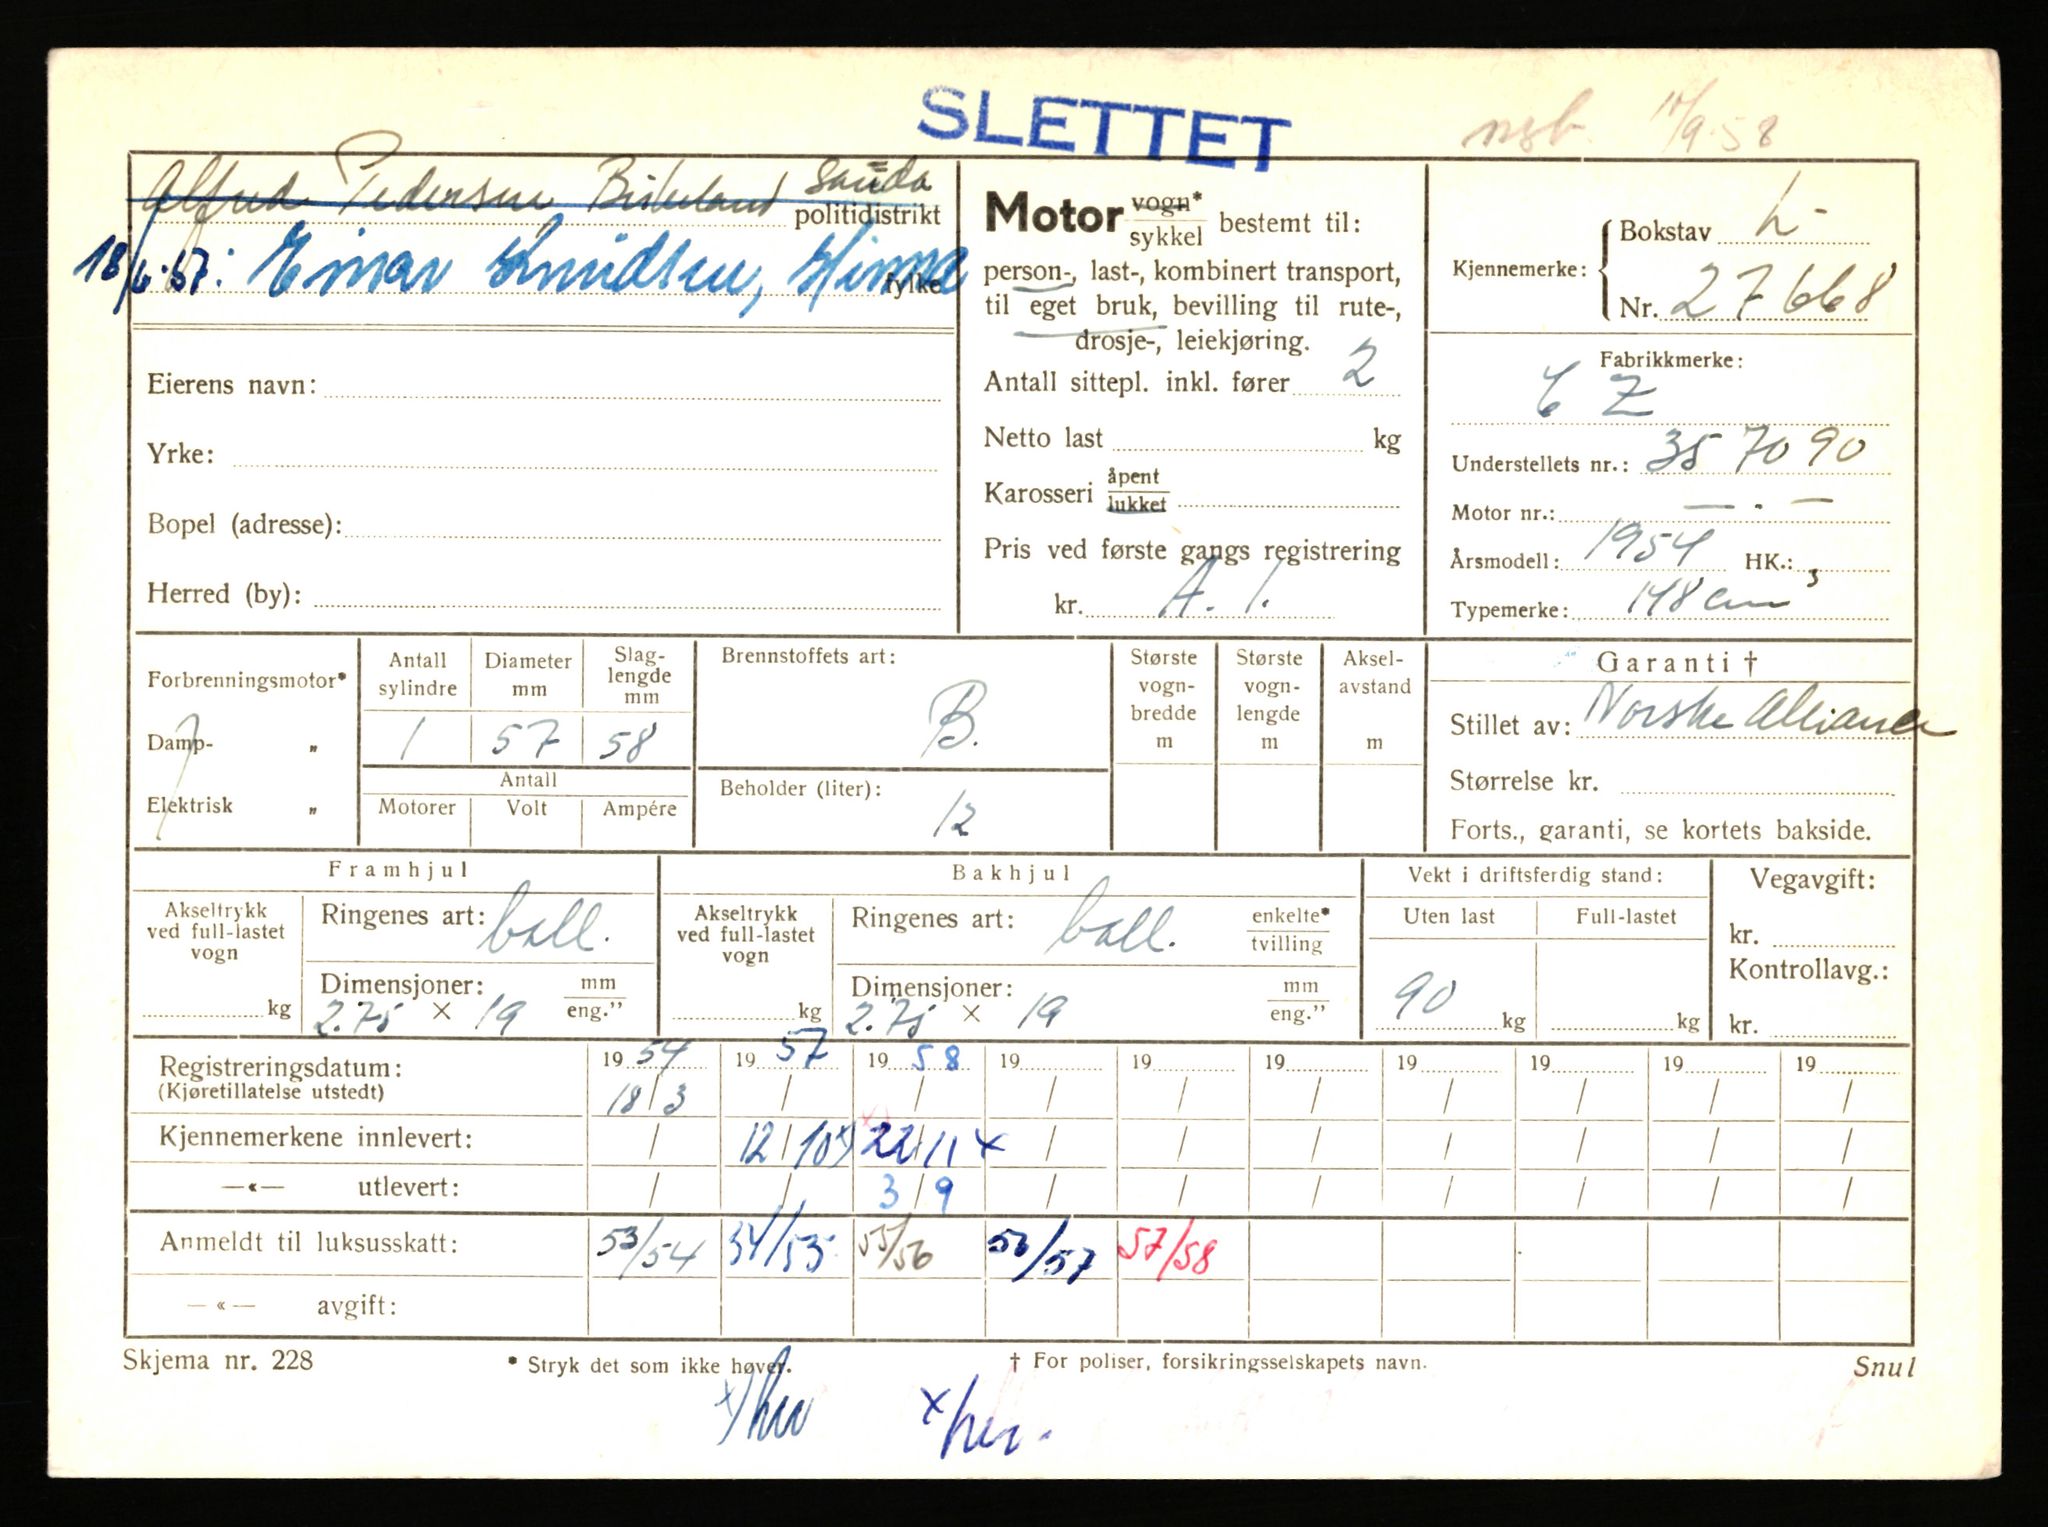 SLETTET
nsb. 17/9-58
Alfred Pedersen Birkeland Sauda
politidistrikt
18/6-57: Einar Knudsen, Hinna
fylke
Eierens navn:
Yrke:
Bopel (adresse):
Herred (by):
Motor vogn*/sykkel bestemt til:
person-, last-, kombinert transport,
til eget bruk, bevilling til rute-,
drosje-, leiekjøring.
Antall sittepl. inkl. fører 2
Netto last kg
Karosseri åpent/lukket
Pris ved første gangs registrering
kr. A. 1.
Kjennemerke: Bokstav L-
Nr. 27668
Fabrikkmerke:
C Z
Understellets nr.: 357090
Motor nr.: — . —
Årsmodell: 1954 HK.:
Typemerke: 148 cm³
Forbrenningsmotor*
Damp- „
Elektrisk „
Antall sylindre 1
Diameter mm 57
Slaglengde mm 58
Antall
Motorer Volt Ampére
Brennstoffets art:
B.
Beholder (liter):
12
Største vogn-bredde m
Største vogn-lengde m
Aksel-avstand m
Garanti †
Stillet av: Norske Alliance
Størrelse kr.
Forts., garanti, se kortets bakside.
Framhjul
Akseltrykk ved full-lastet vogn kg
Ringenes art: ball.
Dimensjoner: mm/eng."
2.75 × 19
Bakhjul
Akseltrykk ved full-lastet vogn kg
Ringenes art: ball. enkelte*/tvilling
Dimensjoner: mm/eng."
2.75 × 19
Vekt i driftsferdig stand:
Uten last Full-lastet
90 kg kg
Vegavgift:
kr.
Kontrollavg.:
kr.
Registreringsdatum: 1954 1957 1958 19 19 19 19 19 19 19
(Kjøretillatelse utstedt) 18/3 / / / / / / / / /
Kjennemerkene innlevert: / 12/10x) 22/11 x / / / / / / /
—«— utlevert: / / 3/9 / / / / / / /
Anmeldt til luksusskatt: 53/54 54/55 55/56 56/57 57/58
—«— avgift:
Skjema nr. 228 * Stryk det som ikke høver. † For poliser, forsikringsselskapets navn. Snul
x) her x/her.